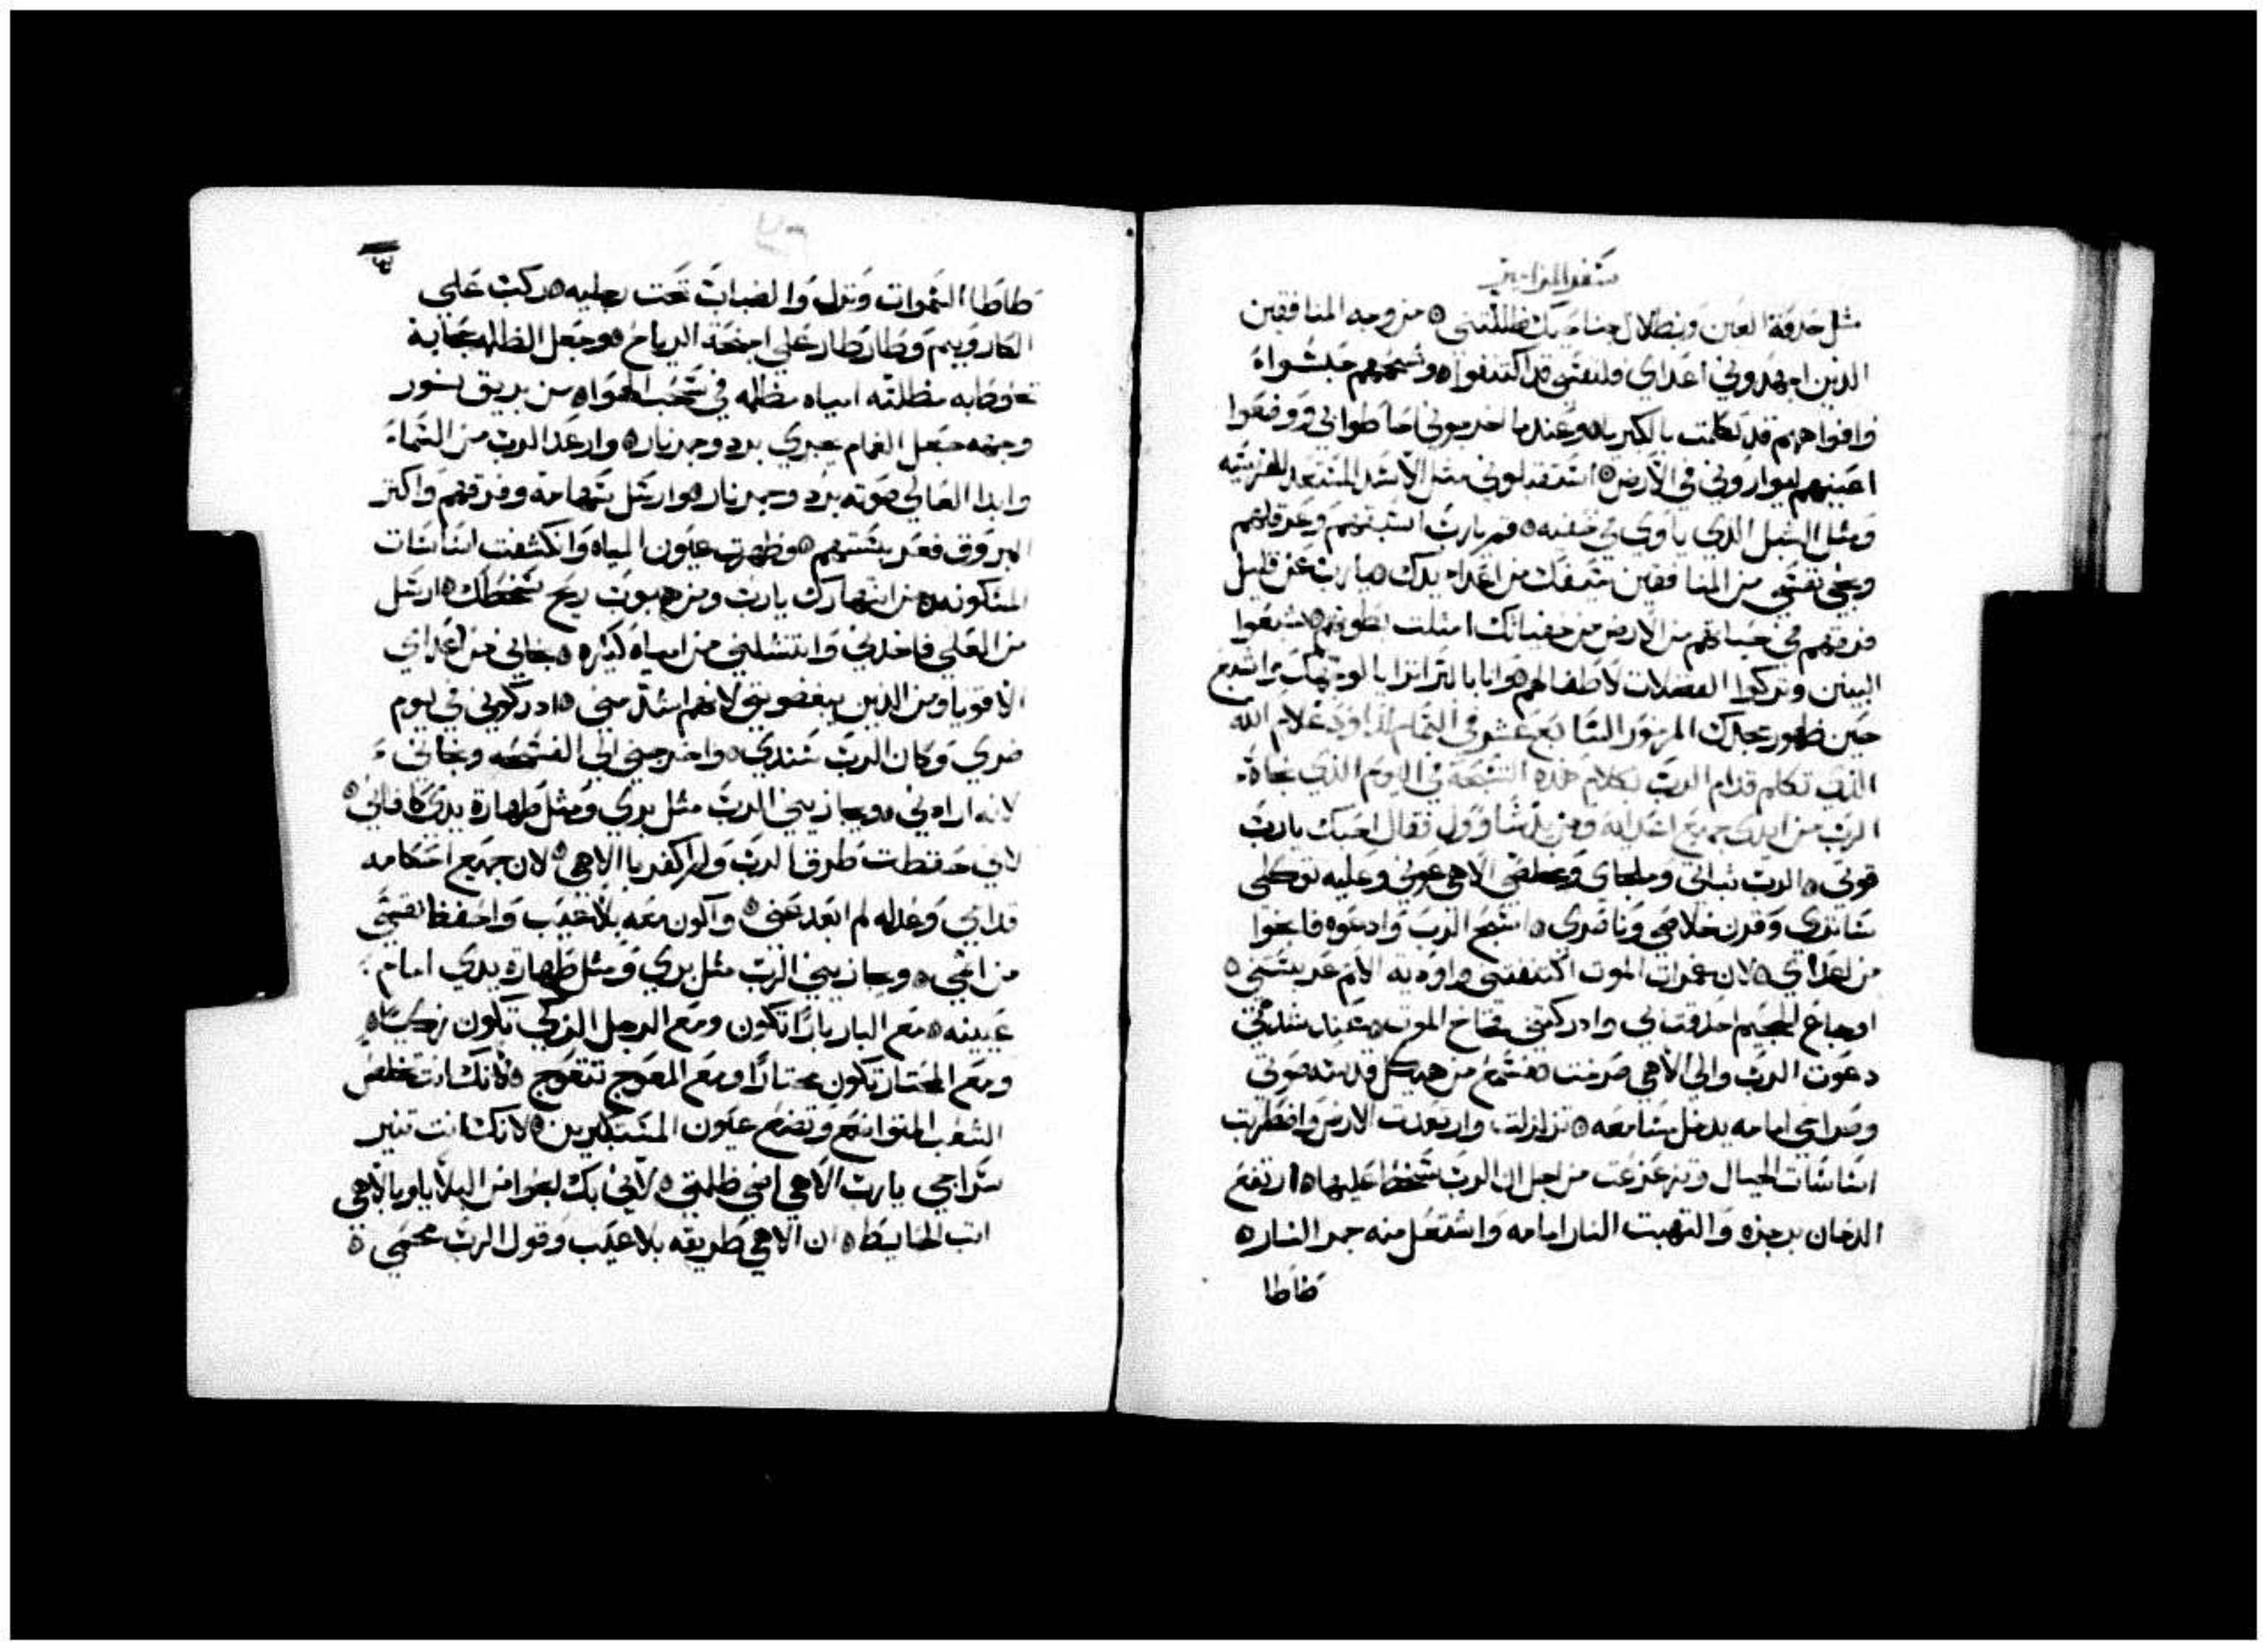 سفر المزامير
مثل حدقة العين وبظلال جناحيك ظللتني ه من وجه المنافقين
الذين اجهدوني اعداي ولنفسي قد اكتنفوا ه وشحمهم حبسوا ه
وافواههم قد تكلمت بالكبريا ه وعندما اخرجوني احاطوا بي ووضعوا
اعينهم ليواروني في الارض ه استقبلوني مثل الاسد المستعد للفريسه
ومثل الشبل الذي ياوي في خفيه ه قم يارب اسبقهم وعرقلهم
ونجي نفسي من المنافقين سيفك من اعداء يدك ه يارب عن قليل
فرقهم في حياتهم من الارض من خفياتك امتلت بطونهم ه شبعوا
البنين وتركوا الفضلات لاطفالهم ه وانا بالبر اترايا لوجهك واشبع
حين ظهور مجدك المزمور السابع عشر في التمام لداوود غلام الله
الذي تكلم قدام الرب بكلام هذه التسبحة في اليوم الذي نجاه
الرب من ايدي جميع اعدايه ومن يد شاوول فقال احبك يارب
قوتي ه الرب ثباتي وملجاي ومخلصي الاهي عوني وعليه توكلي
ساتري وقرن خلاصي وناصري ه اسبح الرب وادعوه فانجوا
من اعداي ه لان غمرات الموت اكتنفتني واوديه الاثم عربستني ه
اوجاع الجحيم احدقت بي وادركتني فخاخ الموت ه عند شدتي
دعوت الرب والي الاهي صرخت ه فسمع من هيكل قدسه صوتي
وصراخي امامه يدخل مسامعه ه تزلزلت وارتعدت الارض وافطرت
اساسات الجبال وتزعزعت من اجل ان الرب سخط عليها ه ارتفع
الدخان برجزه والتهبت النار امامه واشتعل منه جمر النار ه
طاطا
طاطا السموات ونزل والضباب تحت رجليه ه ركب علي
الكاروبيم وطار طار علي اجنحة الرياح ه وجعل الظلمه حجابة
تحوط به مظلته امياه مظلمه في سحب الهواه من بريق نور
وجهه جعل الغمام يجري برد وجمر نار ه وارعد الرب من السماء
وابدا العالي صوته برد وجمر نار ه وارسل سهامه وفرقهم واكثر
البروق فعربستهم ه وظهرت عيون المياه وانكشفت اساسات
المسكونه ه من انتهارك يارب ومن هبوب ريح سخطك ه ارسل
من العلي فاخذني وانتشلني من امياه كثيره ه نجاني من اعداي
الاقويا ومن الذين يبغضوني لانهم اشد مني ه ادركوني في يوم
ضري وكان الرب سندي ه واخرجني الي الفسحه ونجاني
لانه ارادني ه ويجازيني الرب مثل بري ومثل طهارة يدي كافاني ه
لاني حفظت طرق الرب ولم اكفر با الاهي ه لان جميع احكامه
قدامي وعدله لم ابعد عني ه واكون معه بلا عيب واحفظ نفسي
من اثمي ه ويجازيني الرب مثل بري ومثل طهارة يدي امام
عينيه ه مع البار بارا تكون ومع الرجل الزكي تكون زكيا ه
ومع المختار تكون مختارا ومع المعوج تتعوج ه لانك انت تخلص
الشعب المتواضع وتضع عيون المستكبرين ه لانك انت تنير
سراجي يارب الاهي انير ظلمتي ه لاني بك انجوا من البلايا وبالاهي
اثب الحايط ه ان الاهي طريقه بلا عيب وقول الرب محمي ه